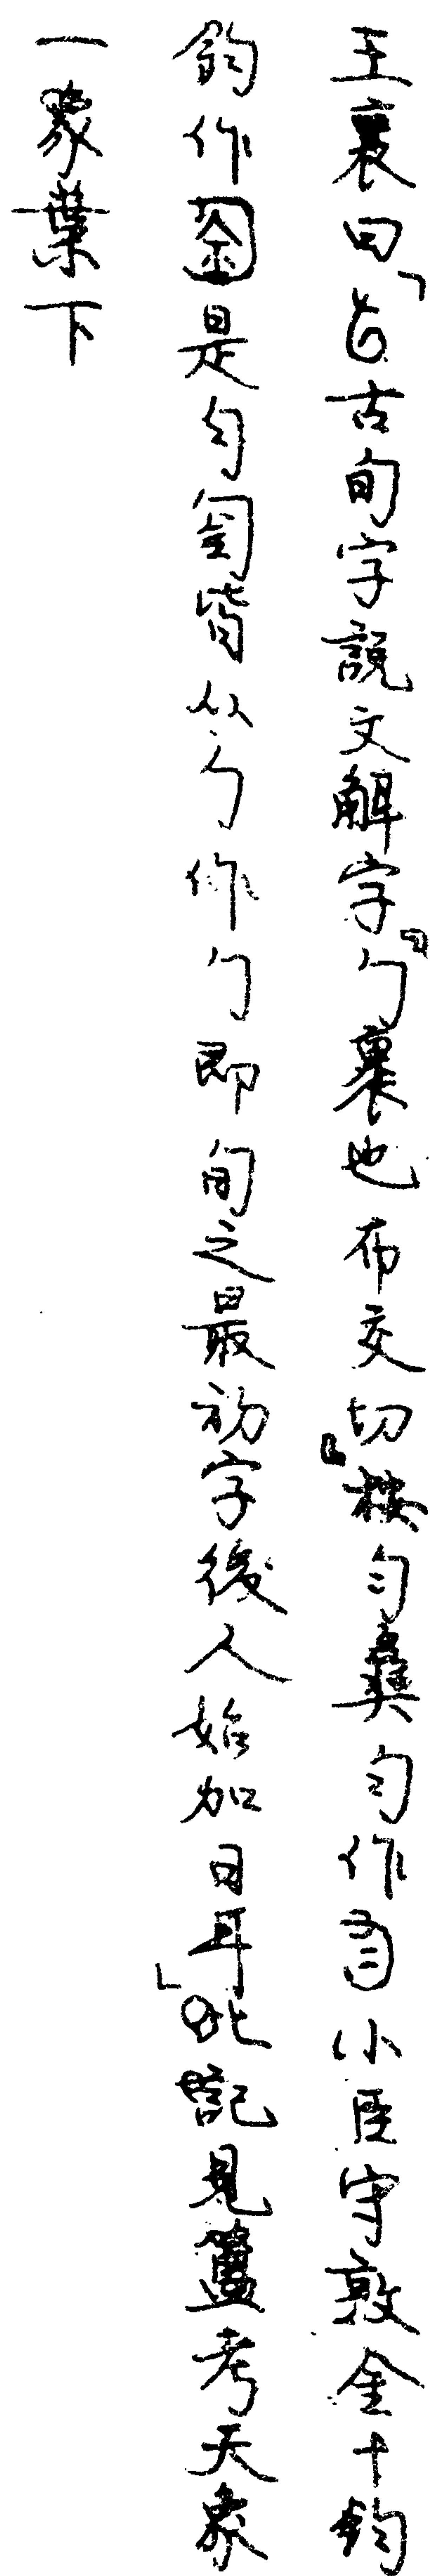 王襄曰「古旬字說文解字『勹裹也布交切』按勻彝勻作小臣守敦金十鈞
鈞作是勻皆从勹作勹即旬之最初字後人始加日耳」此說見簠考天象
一象葉下